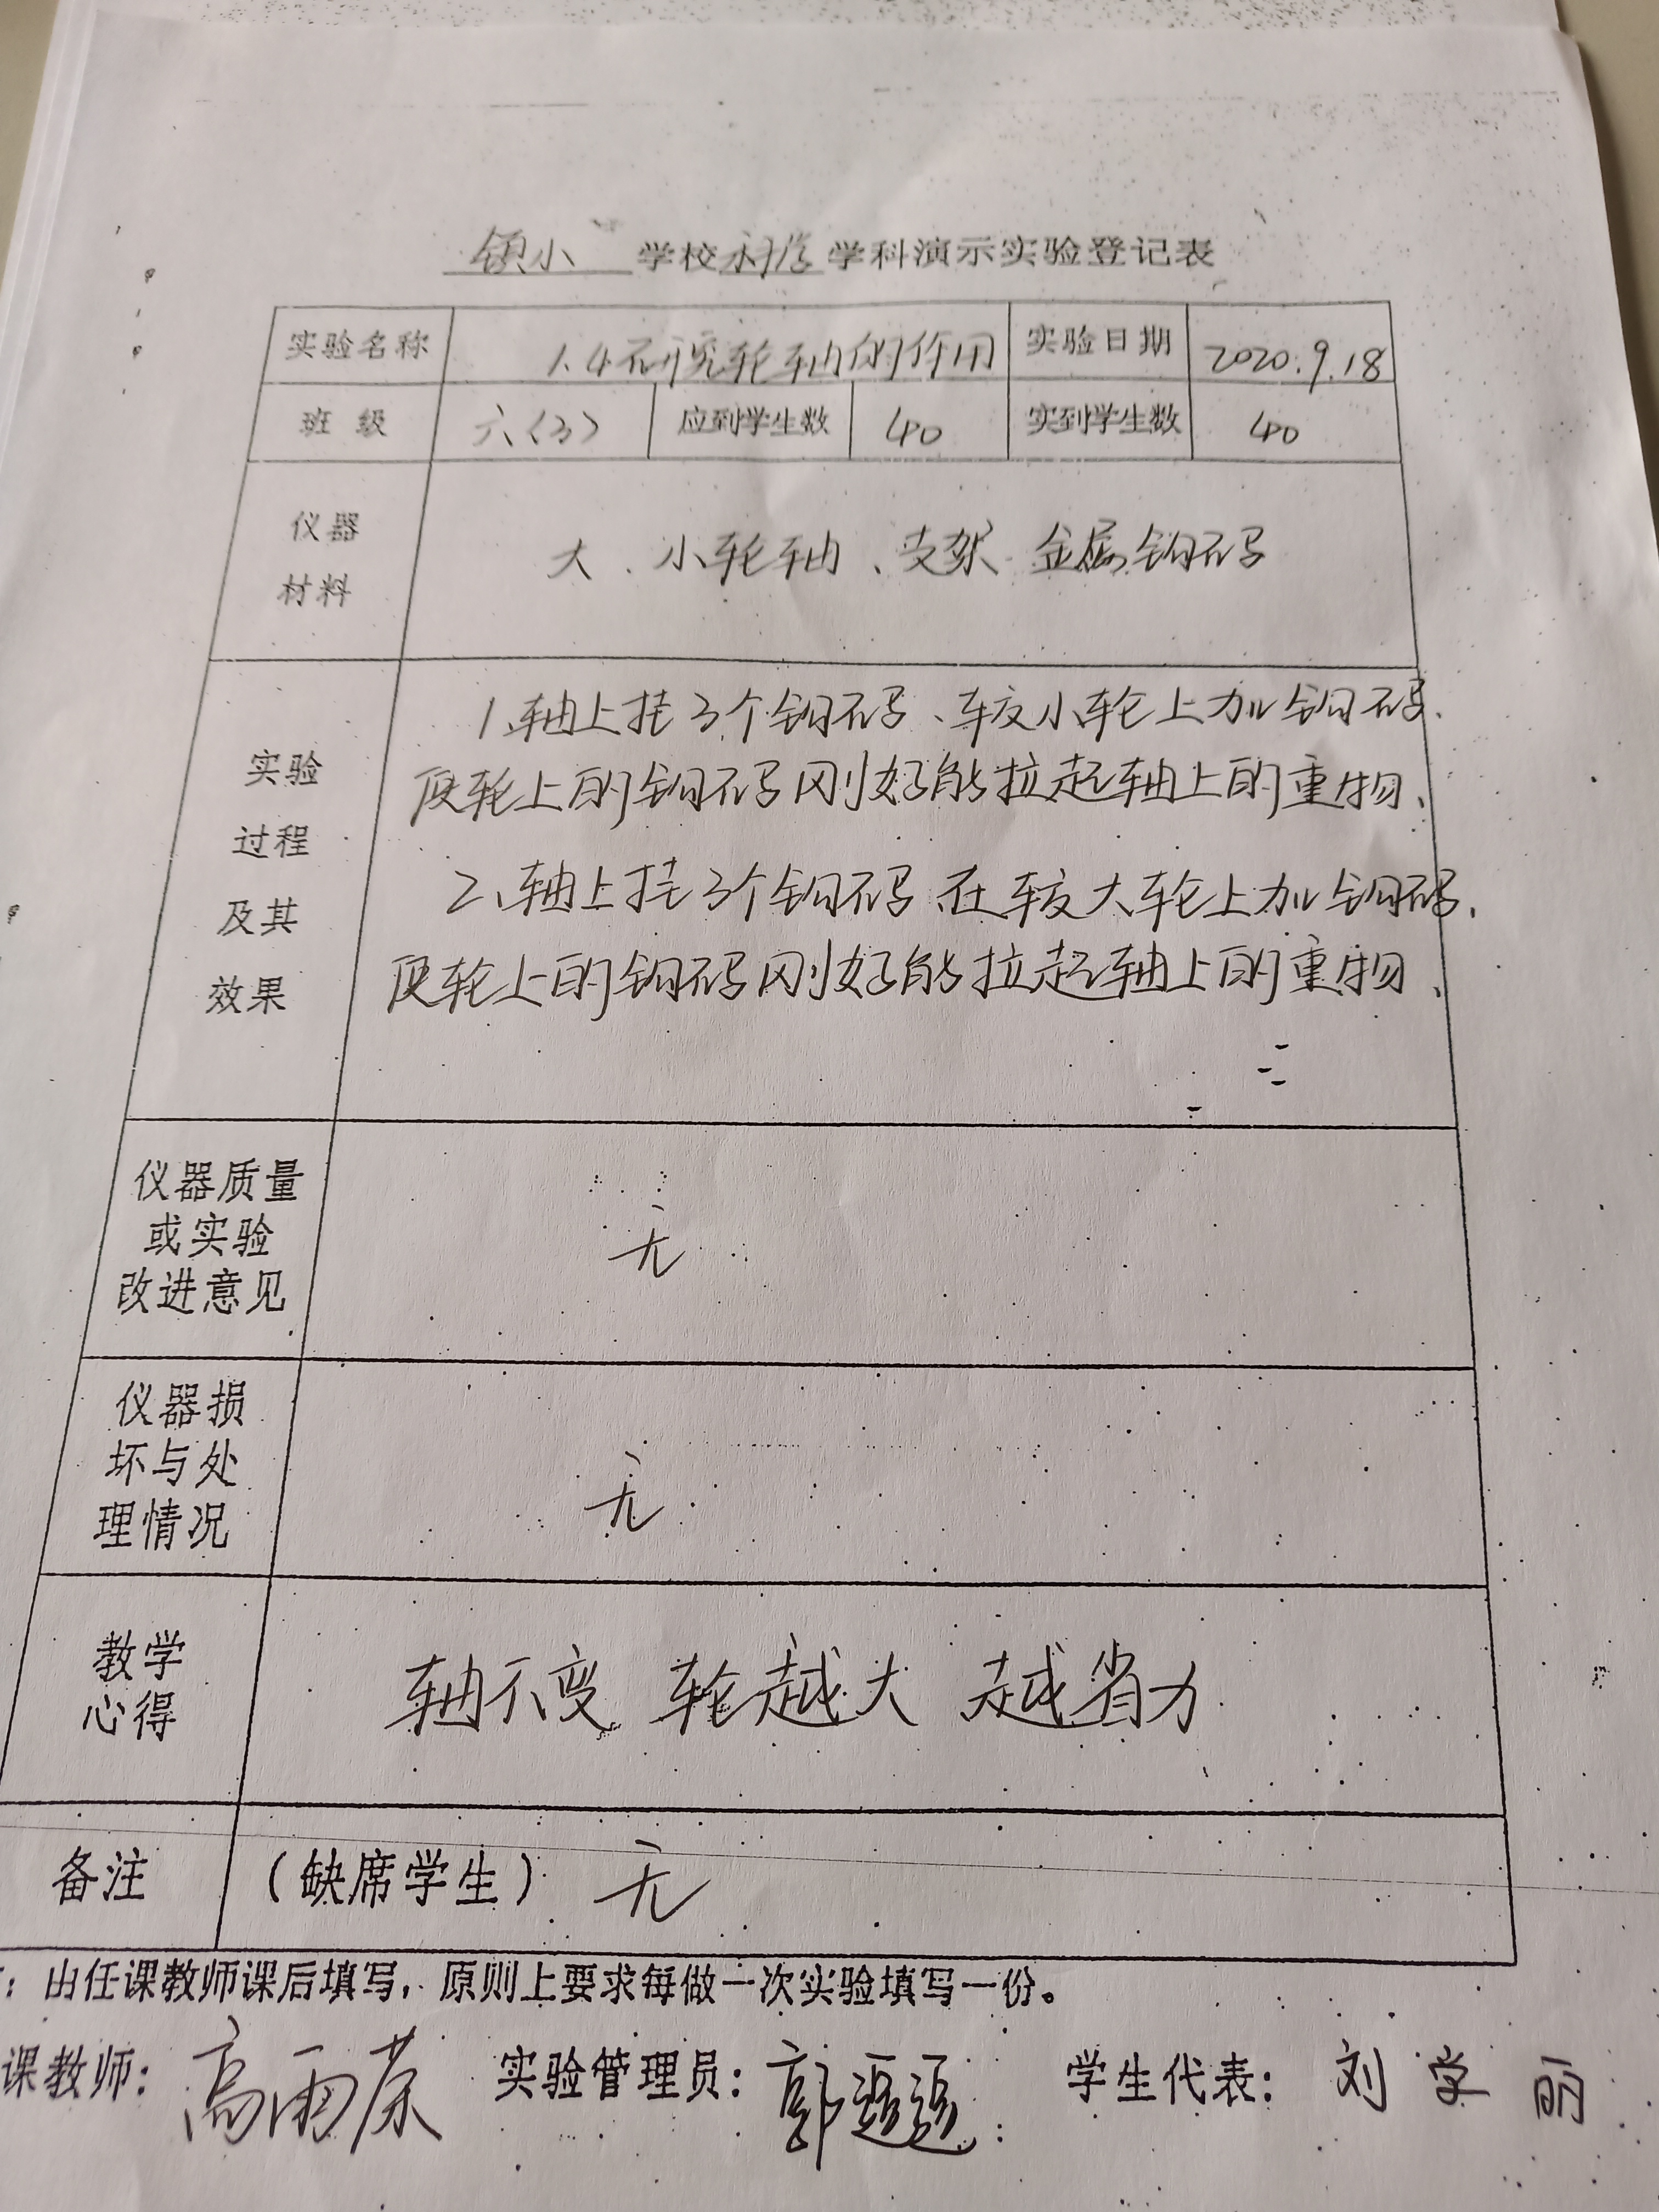 镇小 学校科学学科演示实验登记表
实验名称 1.4研究轮轴的作用 实验日期 2020.9.18
班 级 六(3) 应到学生数 40 实到学生数 40
仪器
材料
大、小轮轴、支架 金属钩码
实验
过程
及其
效果
1、轴上挂3个钩码、较小轮上加钩码、
使轮上的钩码刚好能拉起轴上的重物、
2、轴上挂3个钩码、在较大轮上加钩码、
使轮上的钩码刚好能拉起轴上的重物、
仪器质量
或实验
改进意见
无
仪器损
坏与处
理情况
无
教学
心得
轴不变 轮越大 越省力
备注 (缺席学生) 无
:由任课教师课后填写,原则上要求每做一次实验填写一份。
课教师: 高雨 实验管理员: 郭 学生代表: 刘学丽